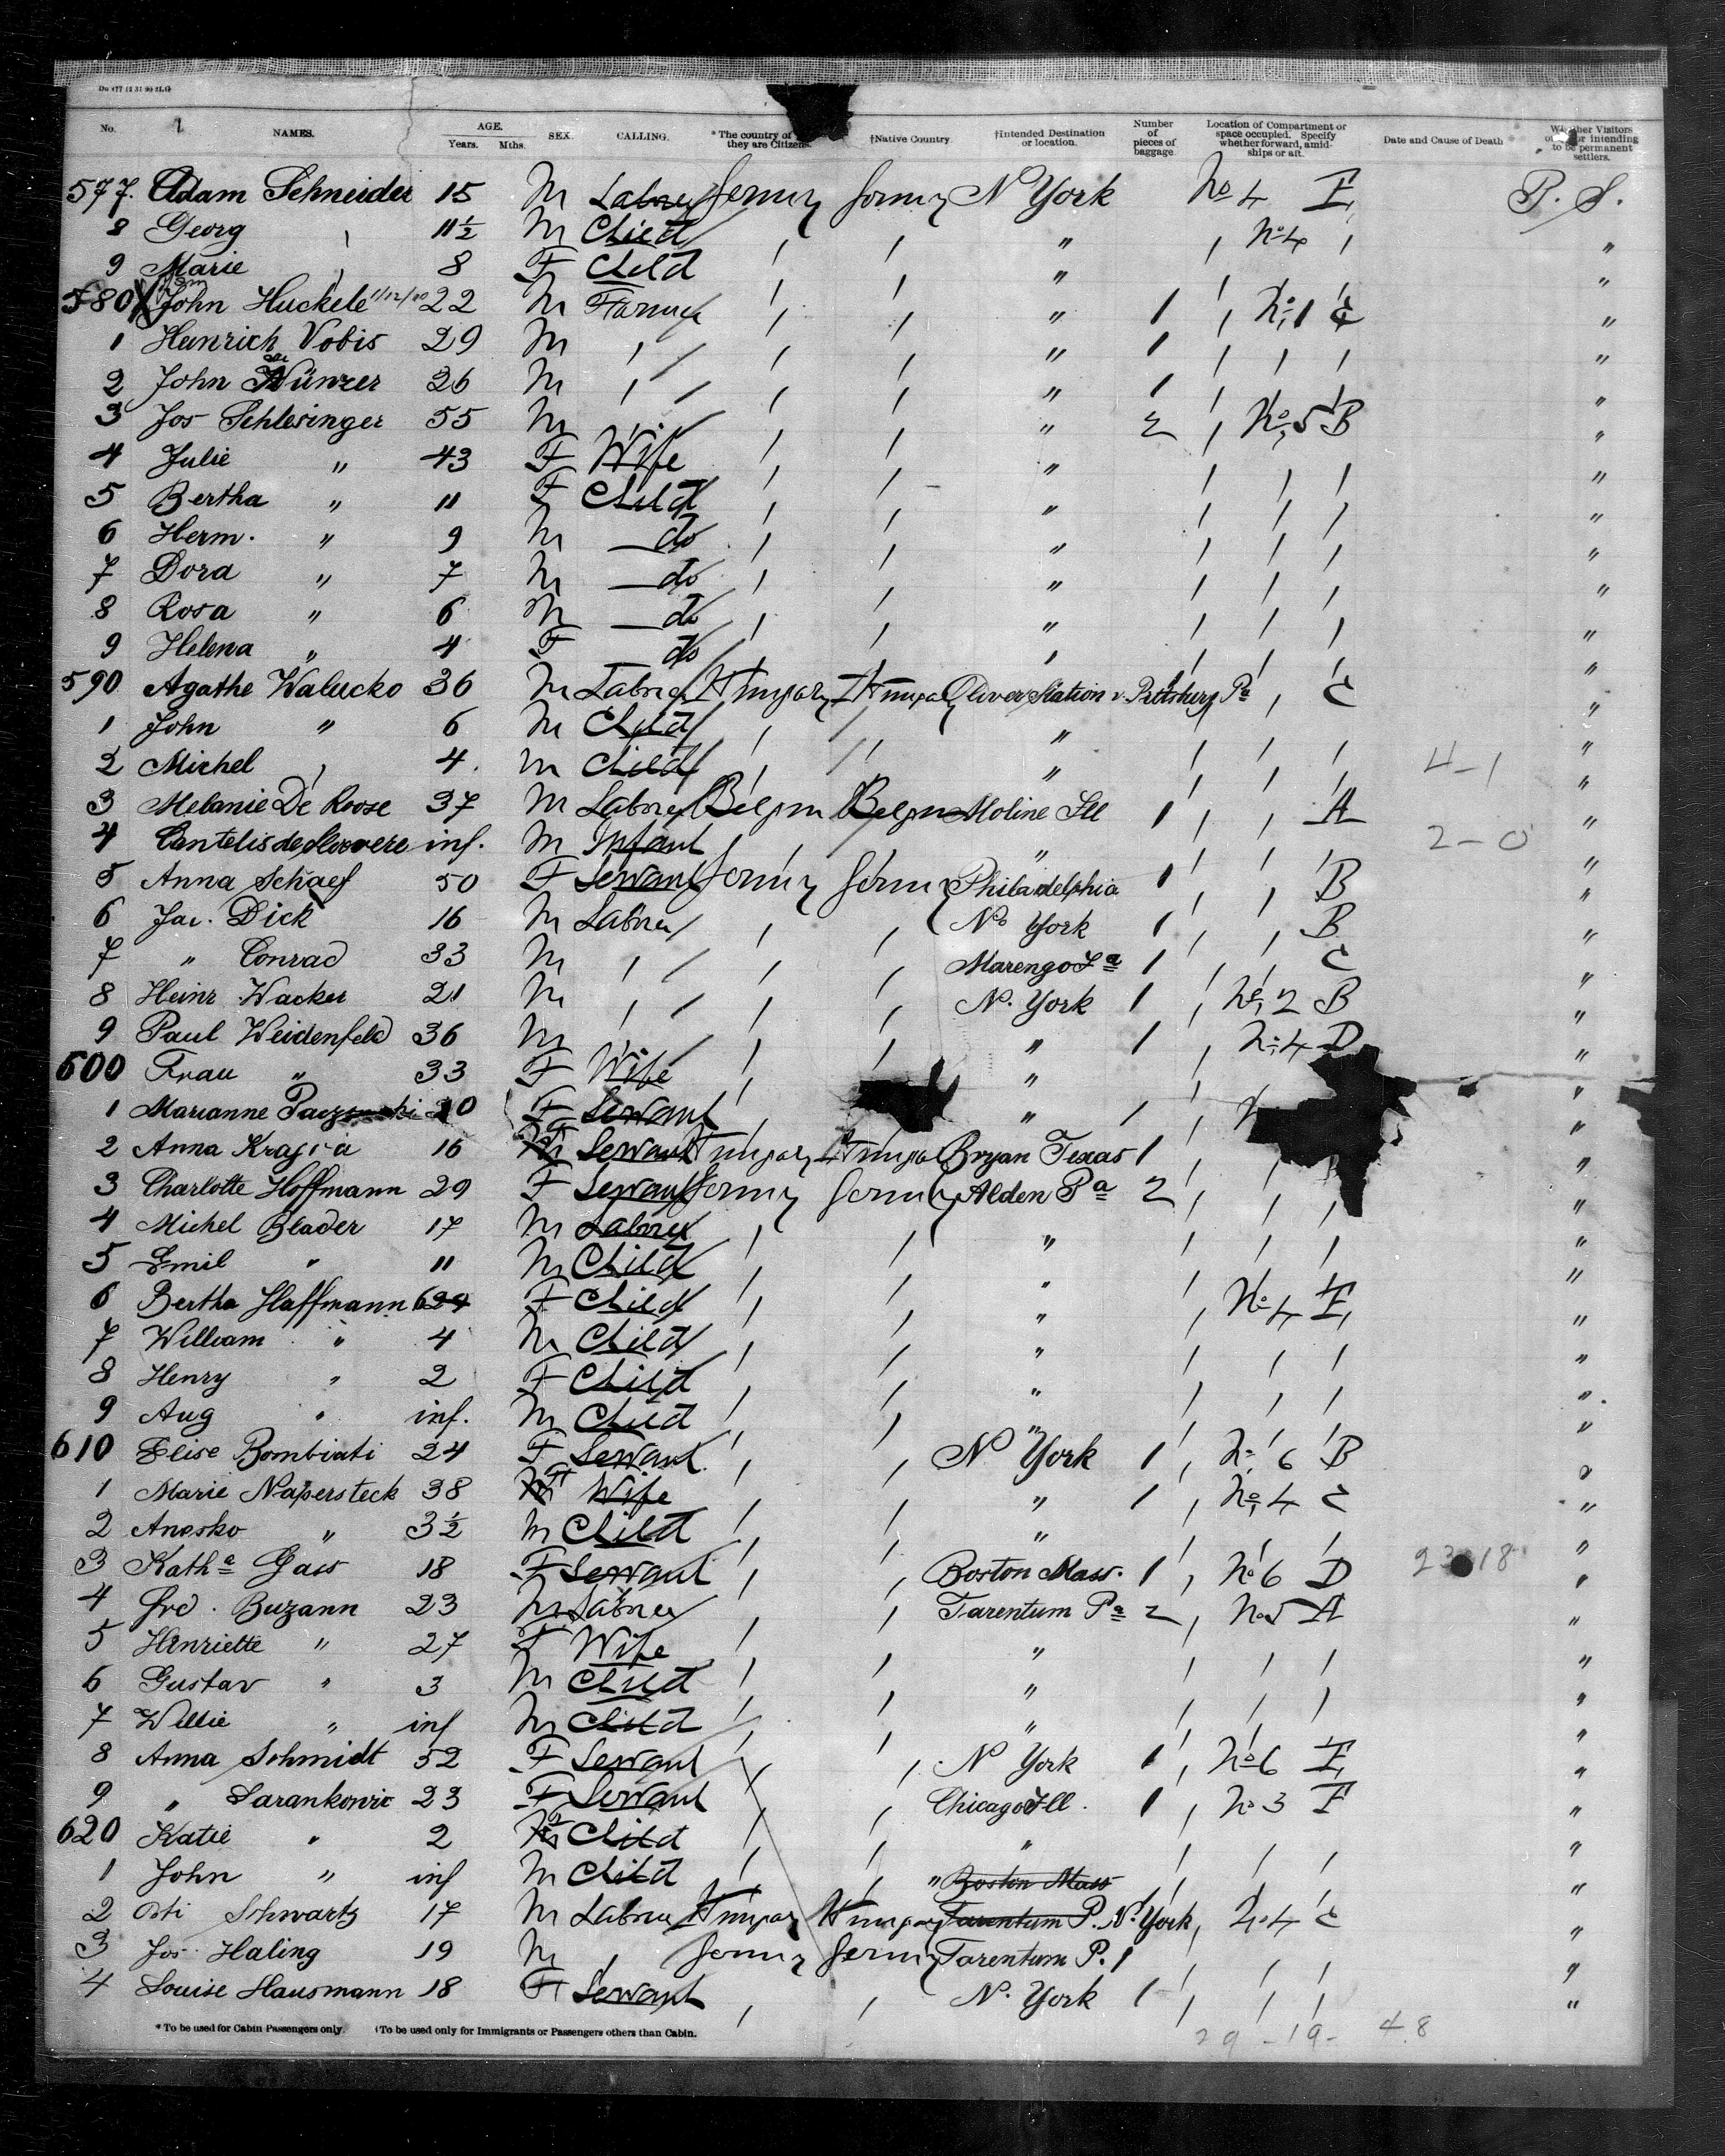 No. NAMES. AGE. Years. Mths. SEX. CALLING. *The country of they are Citizens. †Native Country †Intended Destination or location. Number of pieces of baggage Location of Compartment or space occupied. Specify whether forward, amidships or aft. Date and Cause of Death Whether Visitors or intending to be permanent settlers.
577. Adam Schneider 15 M Labrer Germny Germny N York No 4 E P. S.
8 Georg 11½ M Child " No 4 "
9 Marie 8 F Child " "
580 John Huckele 11/12/00 22 M Farmer " 1 No 1 C "
1 Heinrich Vobis 29 M " 1 "
2 John Wünzer 26 M " 1 "
3 Jos Schlesinger 55 M " 2 No 5 B "
4 Julie " 43 F Wife " "
5 Bertha " 11 F Child " "
6 Herm. " 9 M do " "
7 Dora " 7 M do " "
8 Rosa " 6 M do " "
9 Helena " 4 F do "
590 Agathe Walucko 36 M Labrer Hungary Hungar Oliver Station v. Pittsburg Pa C "
1 John " 6 M Child " "
2 Michel 4 M Child " 4-1 "
3 Melanie De Roose 37 M Labrer Belgm Belgm Moline Ill 1 A "
4 inf. M Infant " 2-0 "
5 Anna Schaef 50 F Servant Germny Germny Philadelphia 1 B "
6 Jac. Dick 16 M Labrer No York 1 B "
7 " Conrad 33 M Marengo Ia 1 C "
8 Heinr Wacker 21 M N. York 1 No 2 B "
9 Paul Weidenfeld 36 M " 1 No 4 D "
600 Frau " 33 F Wife " "
1 Marianne 20 F Servant " 1 "
2 Anna 16 F Servant Hungary Hungar Bryan Texas 1 "
3 Charlotte Hoffmann 29 F Servant Germny Germny Alden Pa 2 "
4 Michel Blader 17 M Labrer " "
5 Emil " 11 M Child " "
6 Bertha Hoffmann 6 F Child " No 4 E "
7 William " 4 M Child " "
8 Henry " 2 F Child " "
9 Aug " inf. M Child " "
610 Elise Bombiati 24 F Servant N York 1 No 6 B "
1 Marie Napersteck 38 F Wife " 1 No 4 C "
2 Anesko " 3½ M Child " "
3 Katha Gass 18 F Servant Boston Mass. 1 No 6 D 23 18 "
4 Frd. Buzann 23 M Labrer Tarentum Pa 2 No 5 A "
5 Henriette " 27 F Wife " "
6 Gustav " 3 M Child " "
7 Willie " inf M Child " "
8 Anna Schmidt 52 F Servant N York 1 No 6 E "
9 " Sarankovic 23 F Servant Chicago Ill. 1 No 3 F "
620 Katie " 2 Child " "
1 John " inf M Child " Boston Mass "
2 Schwartz 17 M Labrer Hungar Hungary Tarentum P. N. York No 4 C "
3 Jos. Haling 19 M Germny Germny Tarentum P. 1 "
4 Louise Hausmann 18 F Servant N. York 1 "
*To be used for Cabin Passengers only. †To be used only for Immigrants or Passengers others than Cabin.
29 - 19 - 48